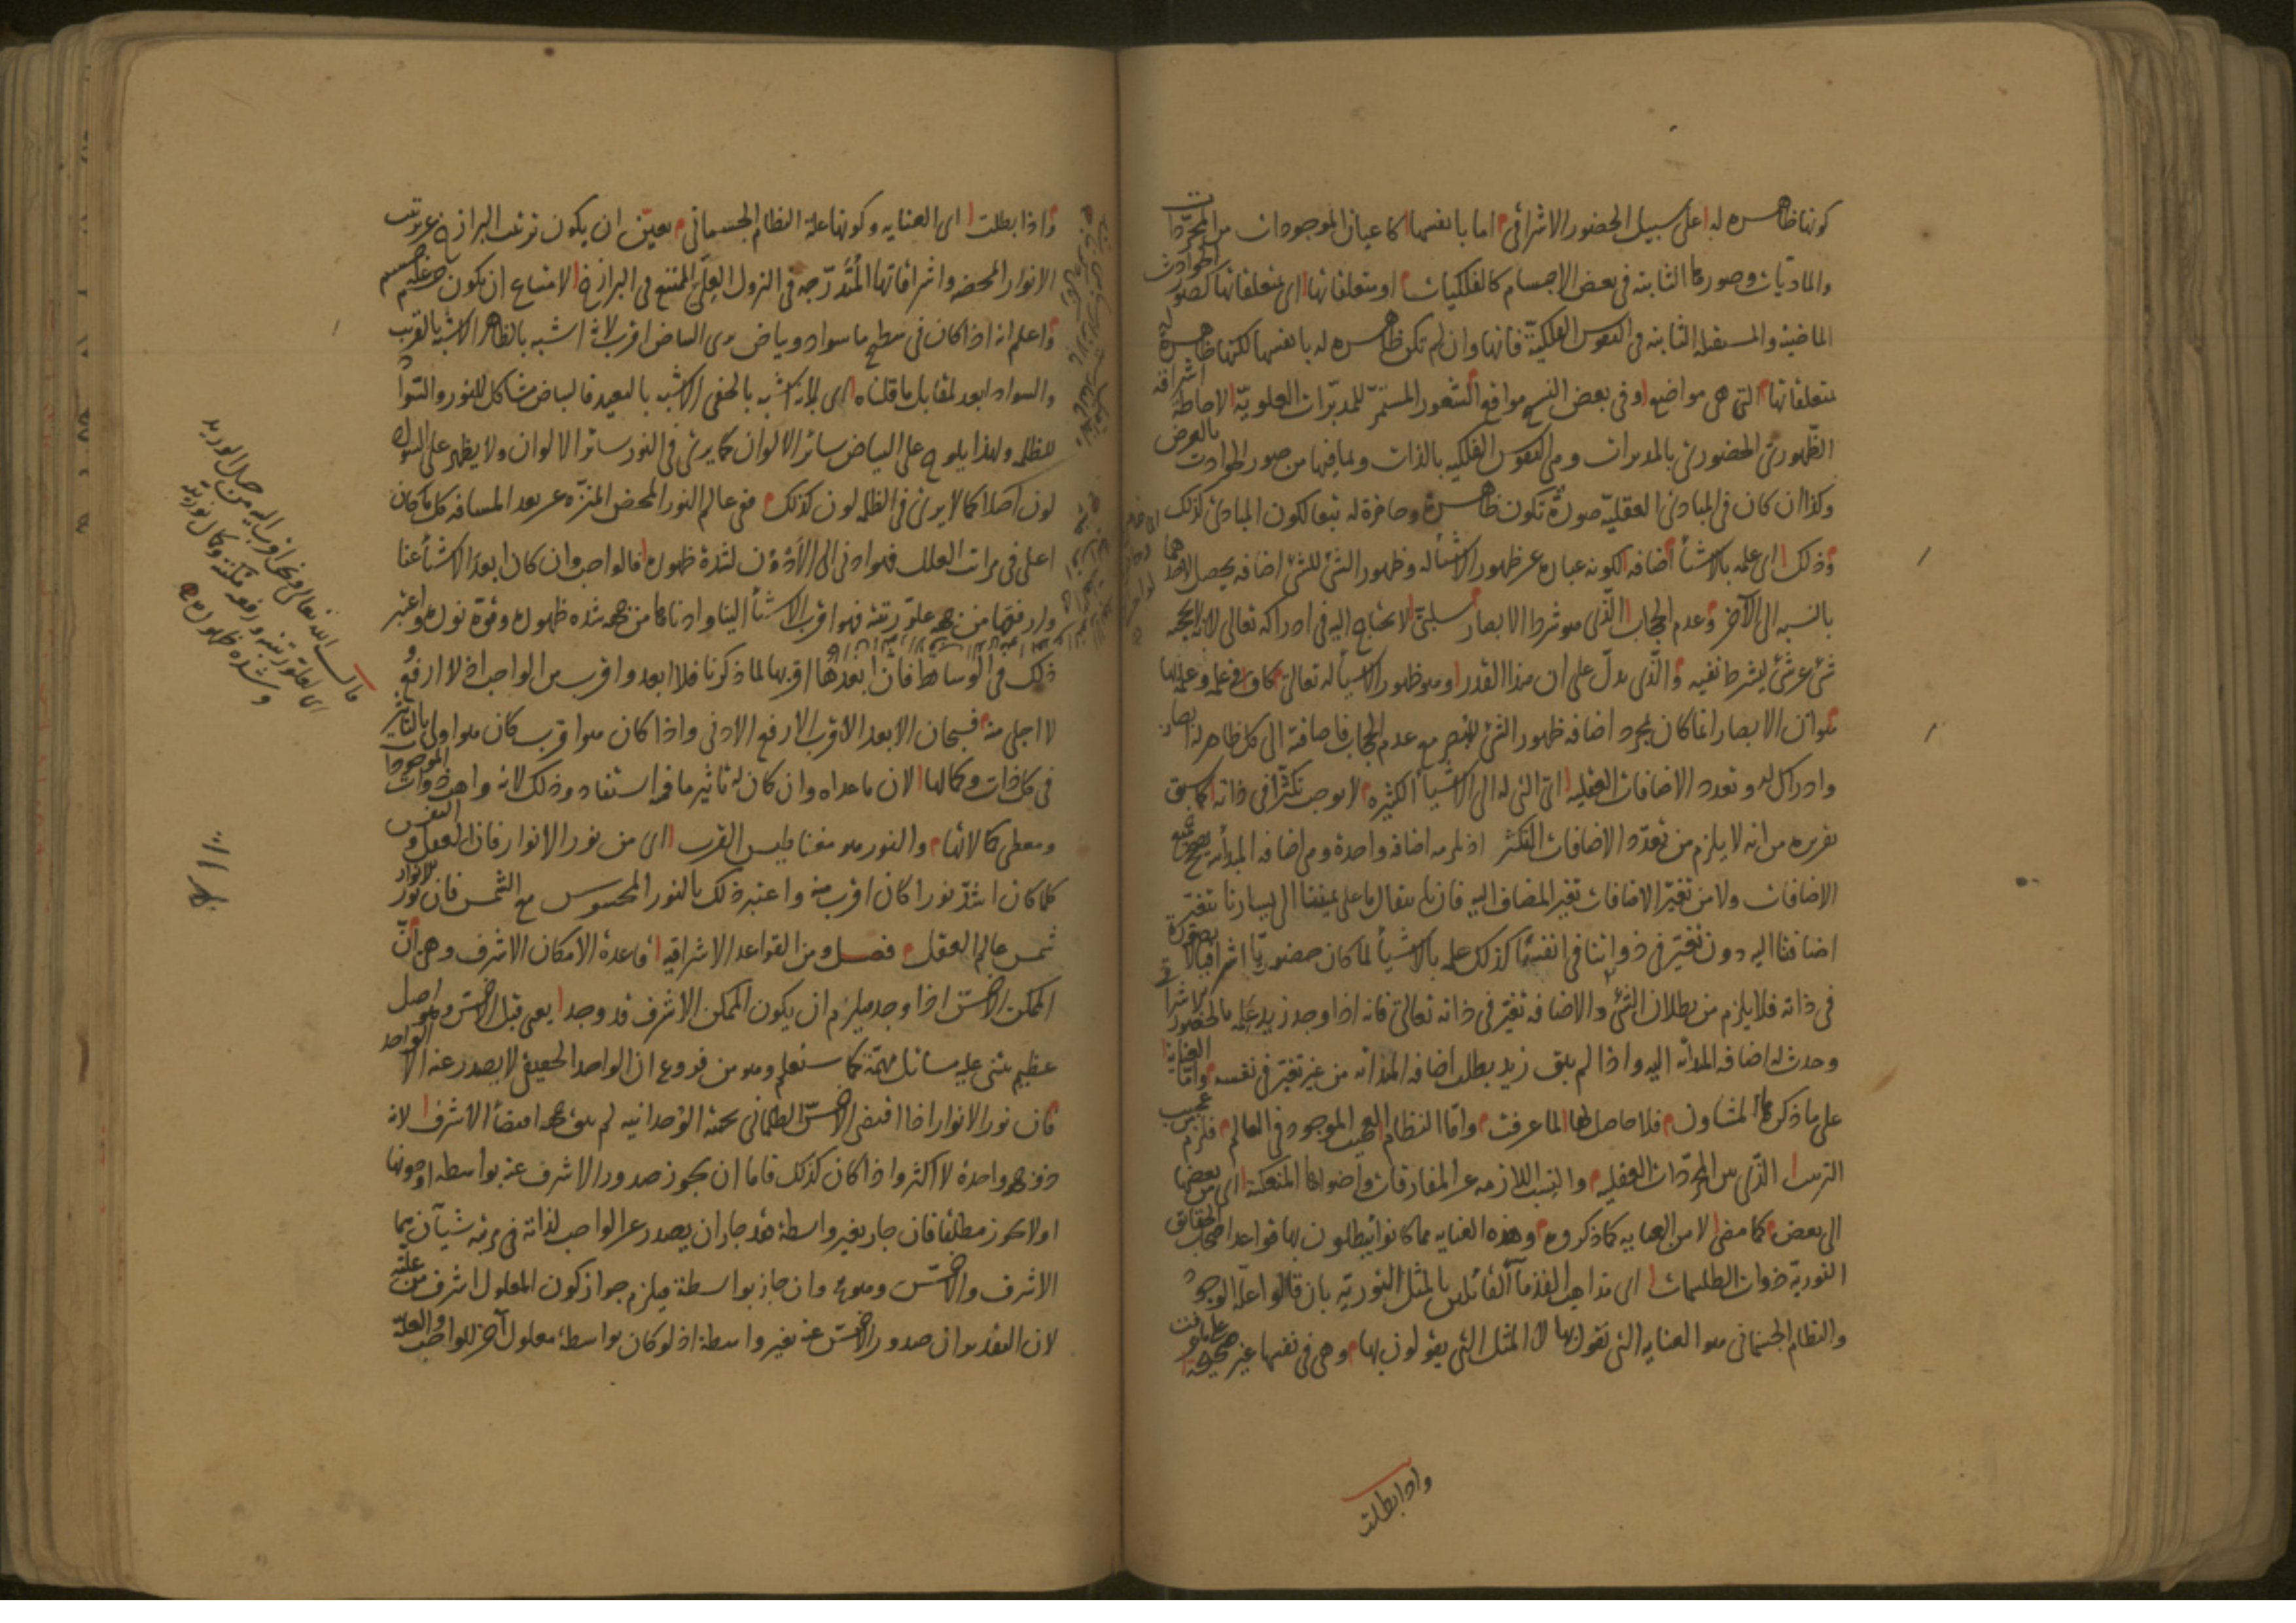 كونها ظاهره له على سبيل الحضور الاشراقى اما بانفسها كاعيان الموجودات من المجردات
والماديات وصورها الثابته فى بعض الاجسام كالفلكيات او متعلقاتها اى بمتعلقاتها كصور الحوادث
الماضية والمستقبله الثابته فى النفوس الفلكية فانها وان لم تكن ظاهره له بانفسها لكنها ظاهرة
بمتعلقاتها التى هى مواضع وفى بعض النسخ مواقع الشعور المستمر للمدبرات العلوية الاحاطة اشراقه
الظهورى الحضورى بالمدبرات وهى النفوس الفلكيه بالذات وبما فيها من صور الحوادث بالعرض
وكذا ان كان فى المبادئ العقلية صورة تكون ظاهرة وحاضرة له تبعا لكون المبادئ كذلك
وذلك اى علمه بالاشيأ اضافه لكونه عباره عن ظهور الاشيأ له وظهور الشئ للشئ اضافه يحصل لاحدهما
بالنسبه الى الآخر وعدم الحجاب الذى هو شرط الابصار سلبى لا يحتاج اليه فى ادراكه تعالى لانه لا يحجبه
شئ عن شئ ليشرط نفيه والذى يدل على ان هذا القدر وهو ظهور الاشيأ له تعالى كاف فى علمه وعلمه لها
هو ان الابصار انما كان بمجرد اضافه ظهور الشئ للبصر مع عدم الحجاب فاضافته الى كل ظاهر له ابصار
وادراك له وتعدد الاضافات العقليه اى التى له الى الاشيأ الكثيره لا يوجب تكثرا فى ذاته كما سبق
تقريره من انه لا يلزم من تعدد الاضافات التكثر اذ يلزمه اضافه واحدة وهى اضافه المبدأيه يصحح جميع
الاضافات ولا من تغير الاضافات تغير المضاف اليه فان بانتقال ما على يميننا الى يسارنا يتغير
اضافتنا اليه دون تغير فى ذواتنا فى انفسنا كذلك علمه بالاشيأ لما كان حضوريا اشراقيا لا بصورة
فى ذاته فلا يلزم من بطلان الشئ والاضافه تغير فى ذاته تعالى فانه اذا وجد زيد علمه بالحضور الاشراقى
وحدث له اضافه المبدأيه اليه واذا لم يبق زيد بطلت اضافه المبدأيه من غير تغير فى نفسه واما العناية
على ما ذكرها المشاون فلا حاصل لها لما عرفت واما النظام العجيب الموجود فى العالم فلزم عجيب
الترتيب الذى بين المجردات العقليه والنسب اللازمه عن المفارقات واضوائها المنعكسة اى من بعضها
الى بعض كما مضى لا من العنايه كما ذكروه وهذه العنايه مما كانوا يبطلون بها قواعد اصحاب الحقايق
النوريه ذوات الطلسمات اى مذاهب القدمآ القائلين بالمثل النوريه بان قالوا علة الوجود
والنظام الجسمانى هو العنايه التى نقول بها لا المثل التى يقولون بها وهى فى نفسها غير صحيحة على ما عرفت
واذا بطلت
واذا بطلت اى العنايه وكونها علة النظام الجسمانى تعين ان يكون ترتيب البرازخ عن ترتيب
الانوار المحضه واشراقاتها المتدرجه فى النزول العلى الممتنع فى البرازخ لامتناع ان يكون جسم علة جسم
واعلم انه اذا كان فى سطح ما سواد وبياض يرى البياض اقرب لانه اشبه بالظاهر الاشبه بالقريب
والسواد ابعد لمقابل ما قلناه اى لانه اشبه بالخفى الاشبه بالبعيد فالبياض مشاكل للنور والسواد
للظلمه ولهذا يلوح على البياض سائر الالوان كما يرى فى النور سائر الالوان ولا يظهر على السواد
لون اصلا كما لا يرى فى الظلمه لون كذلك ففى عالم النور المحض المنزه عن بعد المسافه كل ما كان
اعلى فى مراتب العلل فهو ادنى الى الادون لشدة ظهوره فالواجب وان كان ابعد الاشيأ عنا
وارفعها من جهه علو رتبته فهو اقرب الاشيأ الينا وادناها من جهه شده ظهوره وقوة نوره واعتبر
ذلك فى الوسايط فان ابعدها اقربها لما ذكرنا فلا ابعد واقرب من الواجب اذ لا ارفع و
لا اجلى منه فسبحان الابعد الاقرب الارفع الادنى واذا كان هو اقرب كان هو اولى بالتأثير
فى كل ذات وكمالها لان ما عداه وان كان له تاثير ما فهو استفاد وذلك لانه واهب ذوات الموجودات
ومعطى كمالاتها والنور هو مغناطيس القرب اى من نور الانوار فان العقل و النفس
كلما كان اشد نورا كان اقرب منه واعتبر ذلك بالنور المحسوس مع الشمس فان نور الانوار
شمس عالم العقل فصل ومن القواعد الاشراقيه قاعدة الامكان الاشرف وهى ان
الممكن الاخس اذا وجد فيلزم ان يكون الممكن الاشرف قد وجد يعنى قبل الاخس وهو اصل
عظيم يبتنى عليه مسائل مهمة كما ستعلم وهو من فروع ان الواحد الحقيقى لا يصدر عنه الا الواحد
فان نور الانوار اذا اقتضى الاخس الظلمانى بجهته الوحدانيه لم يبق جهه اقتضأ الاشرف لانه
ذو جهه واحدة لا اكثر واذا كان كذلك فاما ان يجوز صدور الاشرف عنه بواسطه او دونها
او لا يجوز مطلقا فان جاز بغير واسطة فقد جاز ان يصدر عن الواجب لذاته فى مرتبه شيآن هما
الاشرف والاخس وهو مح وان جاز بواسطة فيلزم جواز كون المعلول اشرف من علته
لان التقدير ان صدور الاخس عنه بغير واسطة اذ لو كان بواسطة معلول آخر للواجب والعلة
قال الله تعالى ونحن اقرب اليه من حبل الوريد
اى لعلو رتبته ورفعة مكنته وكمال نوريته
وشدة ظهوره